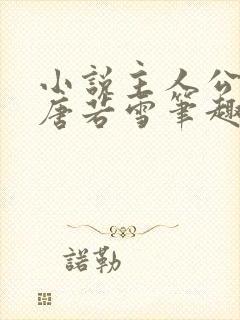 小说主人公
唐若雪笔趣
諾勒